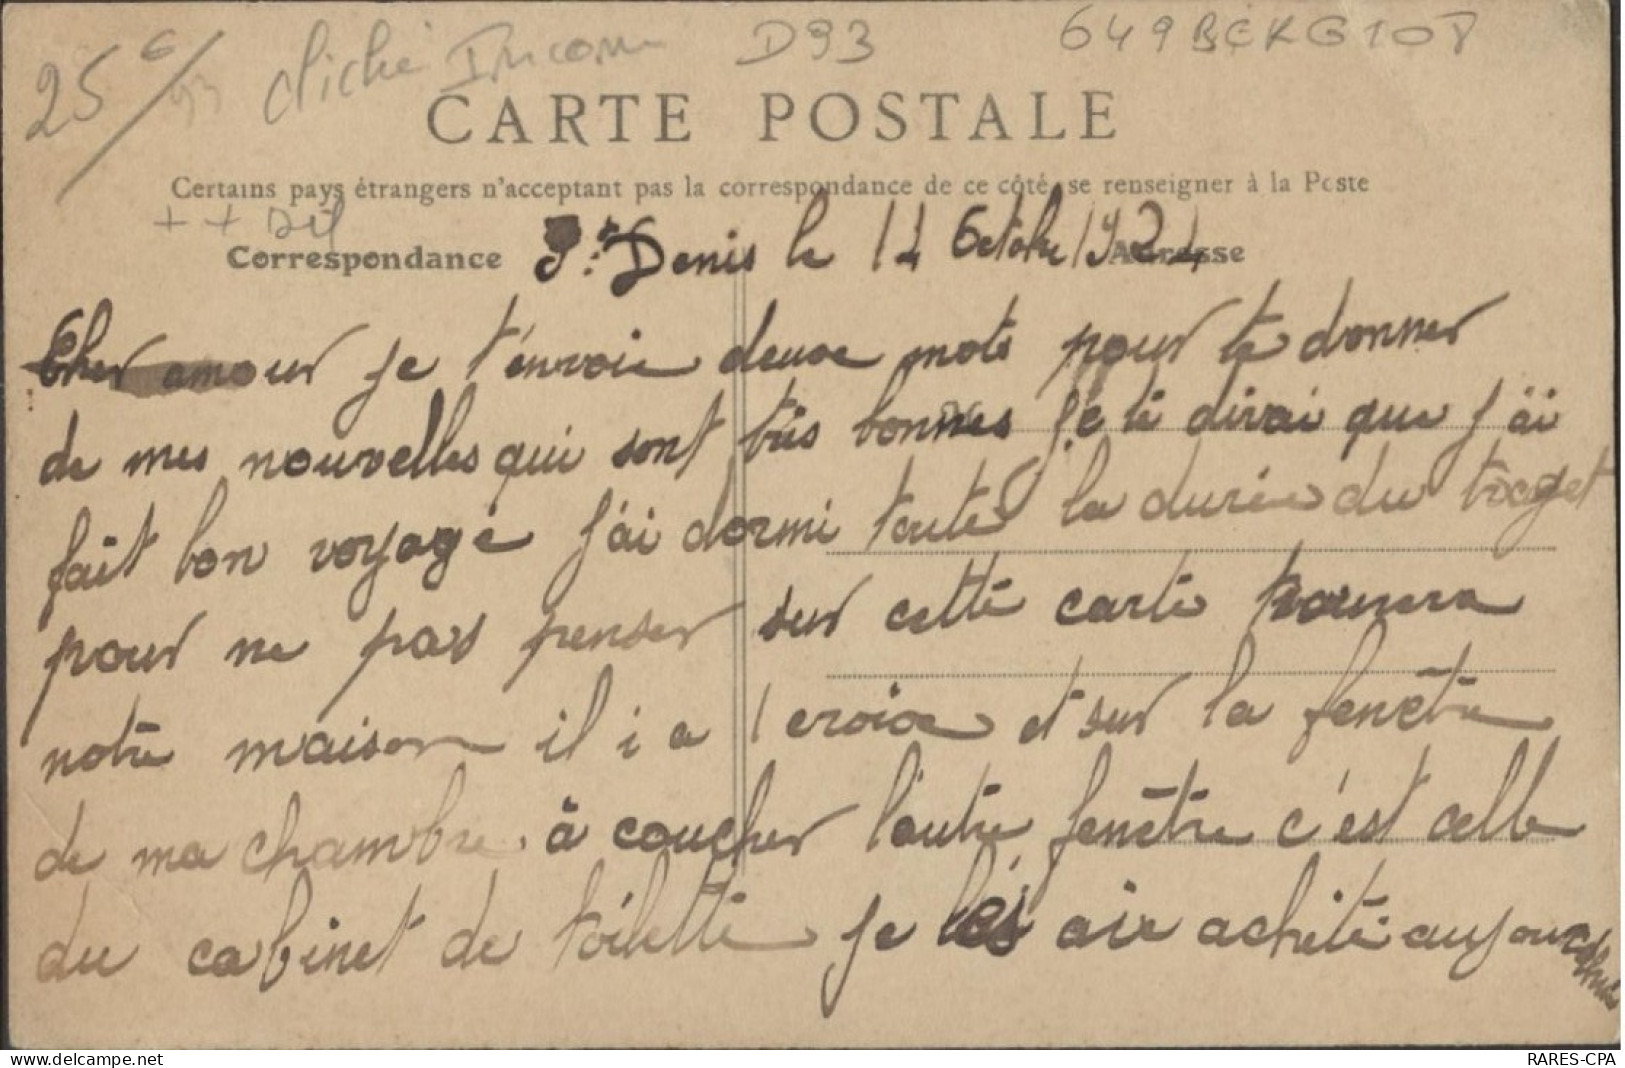 25 € cliché Inconnu D93 649BERG108
CARTE POSTALE
Certains pays étrangers n'acceptant pas la correspondance de ce côté, se renseigner à la Poste
+ + Dél
Correspondance St Denis le 11 Octobre 1921 Adresse
Cher amour je t'envoie deuxe mots pour te donner
de mes nouvelles qui sont très bonnes je te dirai que j'ai
fait bon voyage j'ai dormi toute la durée du trajet
pour ne pas penser sur cette carte tournera
notre maison il i a 1 croixe et sur la fenêtre
de ma chambre à coucher l'autre fenêtre c'est celle
du cabinet de toilette je les aie acheté aujourd'hui
RARES-CPA